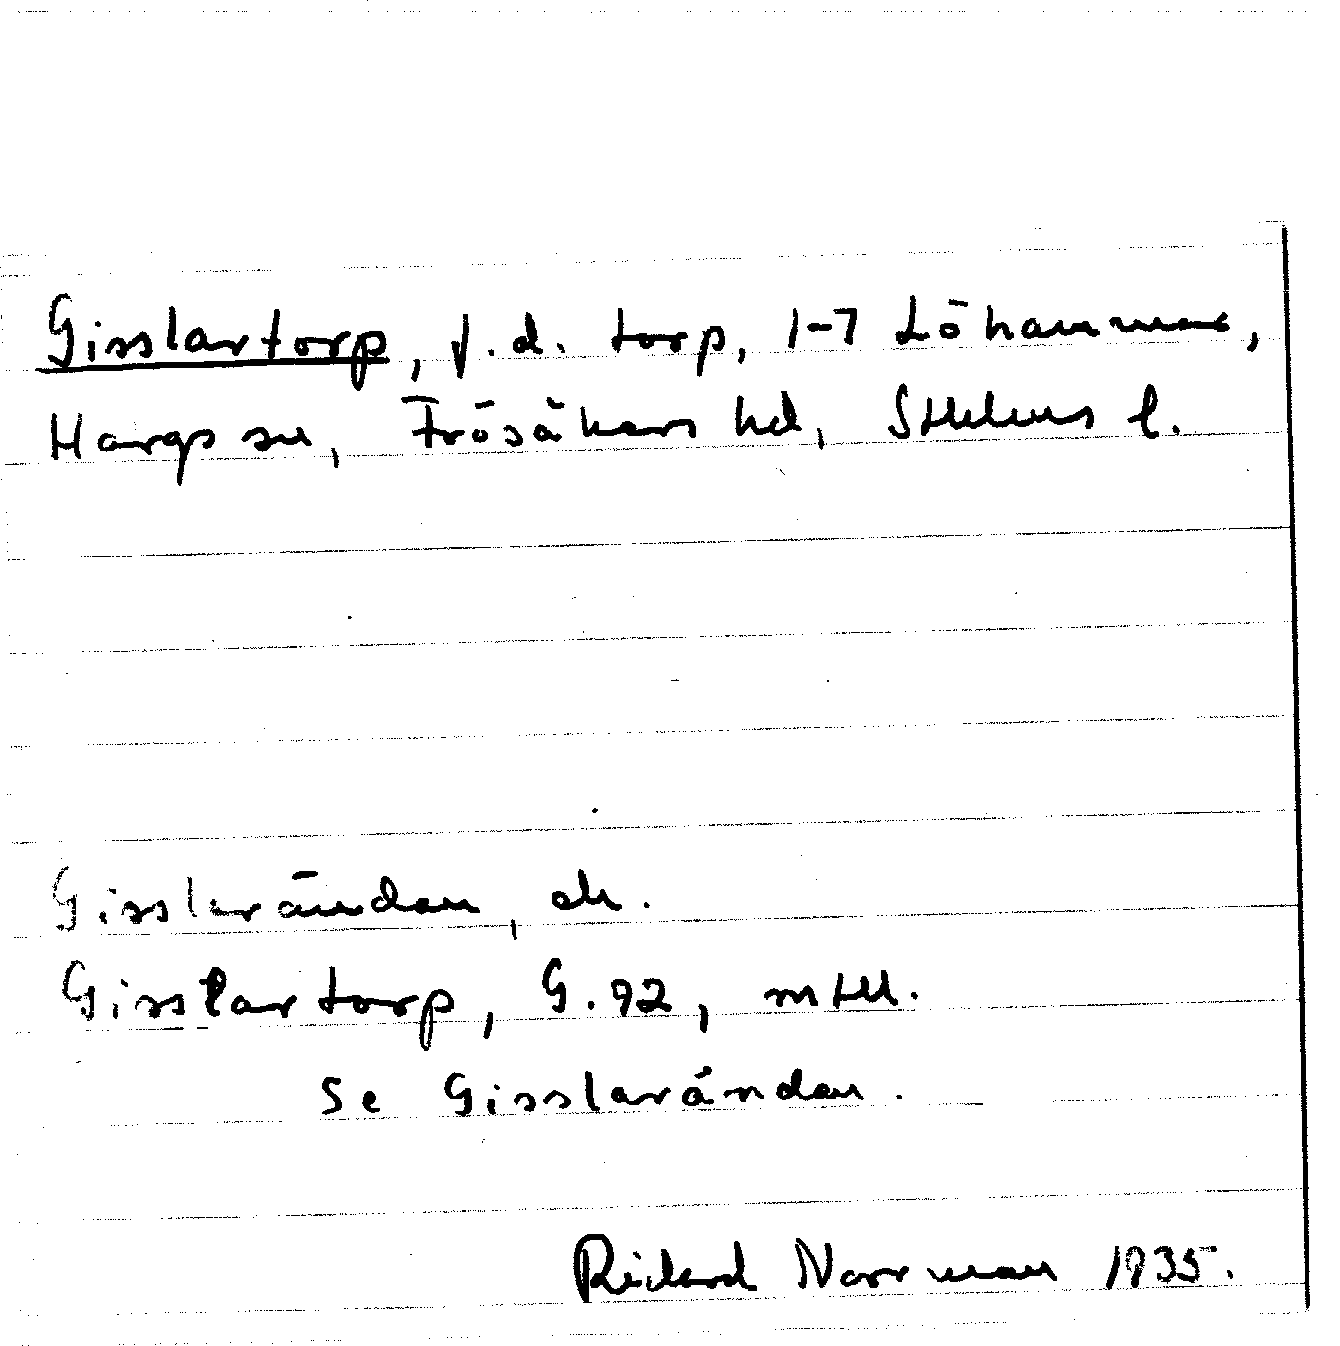 Gisslartorp, f.d. torp, 1-7 Löhammar,
Hargs sn, Frösåkers hd, Sthlms l.
Gisslarändan, ek.
Gisslartorp, G.92, mtll.
Se Gisslarändan.
Rickard Norrman 1935.